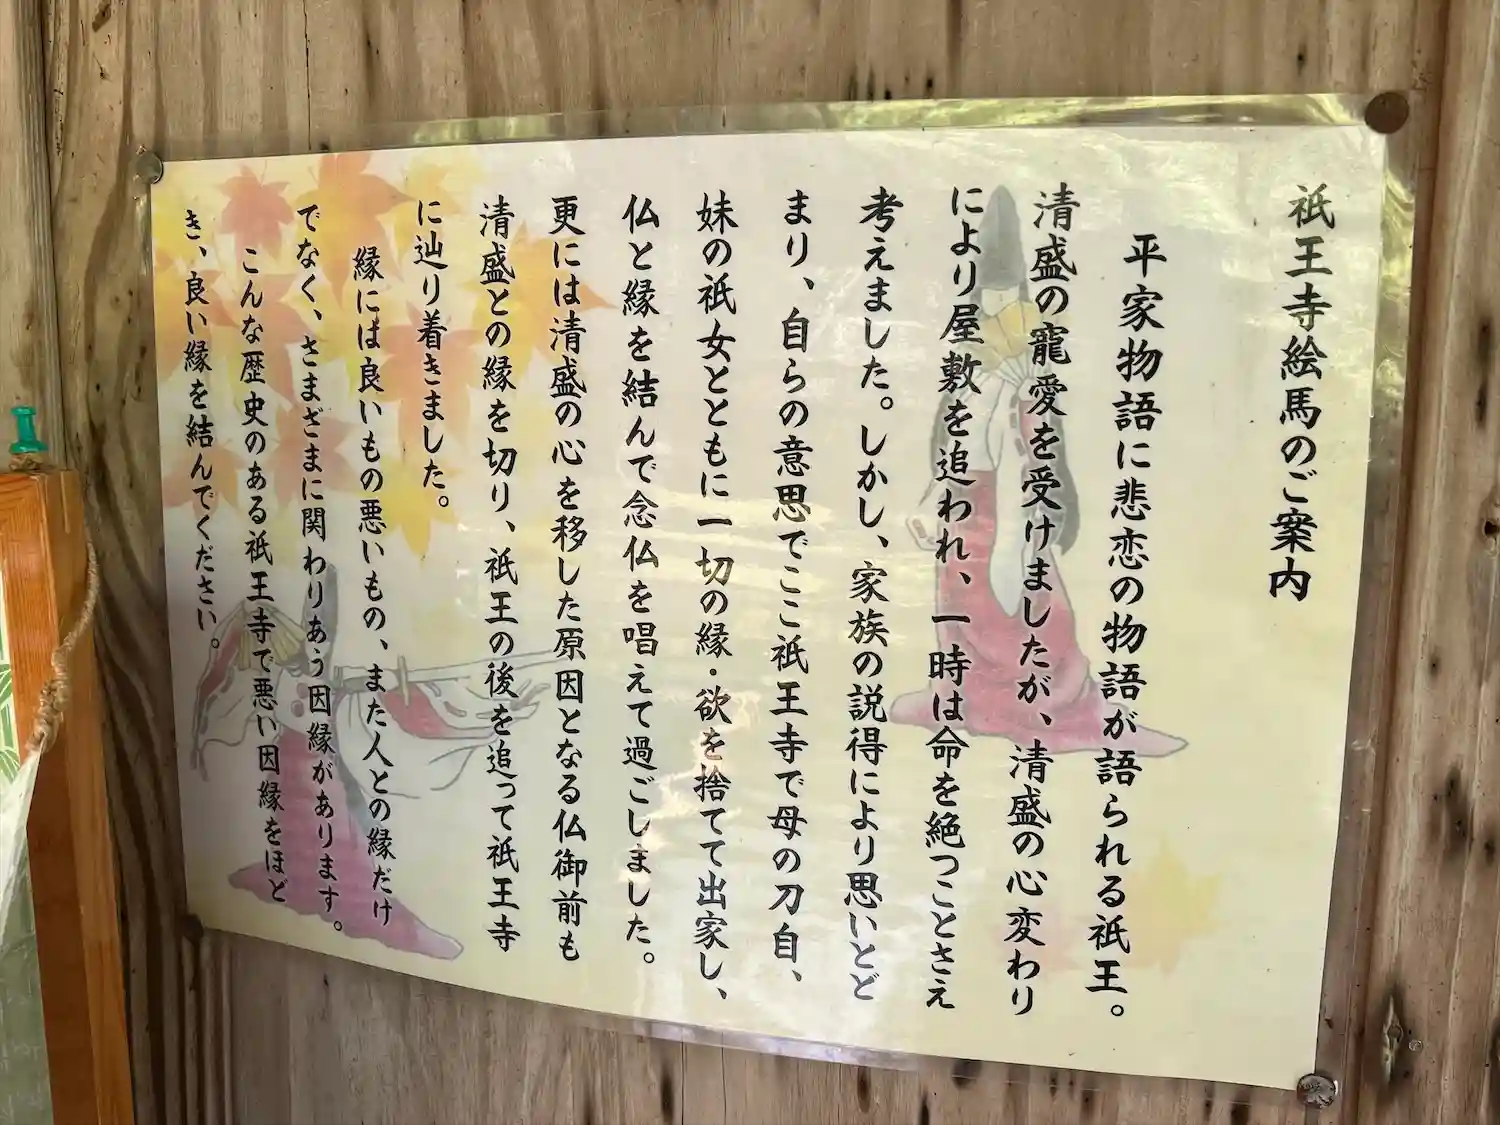 祇王寺絵馬のご案内
平家物語に悲恋の物語が語られる祇王。
清盛の寵愛を受けましたが、清盛の心変わり
により屋敷を追われ、一時は命を絶つことさえ
考えました。しかし、家族の説得により思いとど
まり、自らの意思でここ祇王寺で母の刀自、
妹の祇女とともに一切の縁・欲を捨てて出家し、
仏と縁を結んで念仏を唱えて過ごしました。
更には清盛の心を移した原因となる仏御前も
清盛との縁を切り、祇王の後を追って祇王寺
に辿り着きました。
縁には良いもの悪いもの、また人との縁だけ
でなく、さまざまに関わりあう因縁があります。
こんな歴史のある祇王寺で悪い因縁をほど
き、良い縁を結んでください。